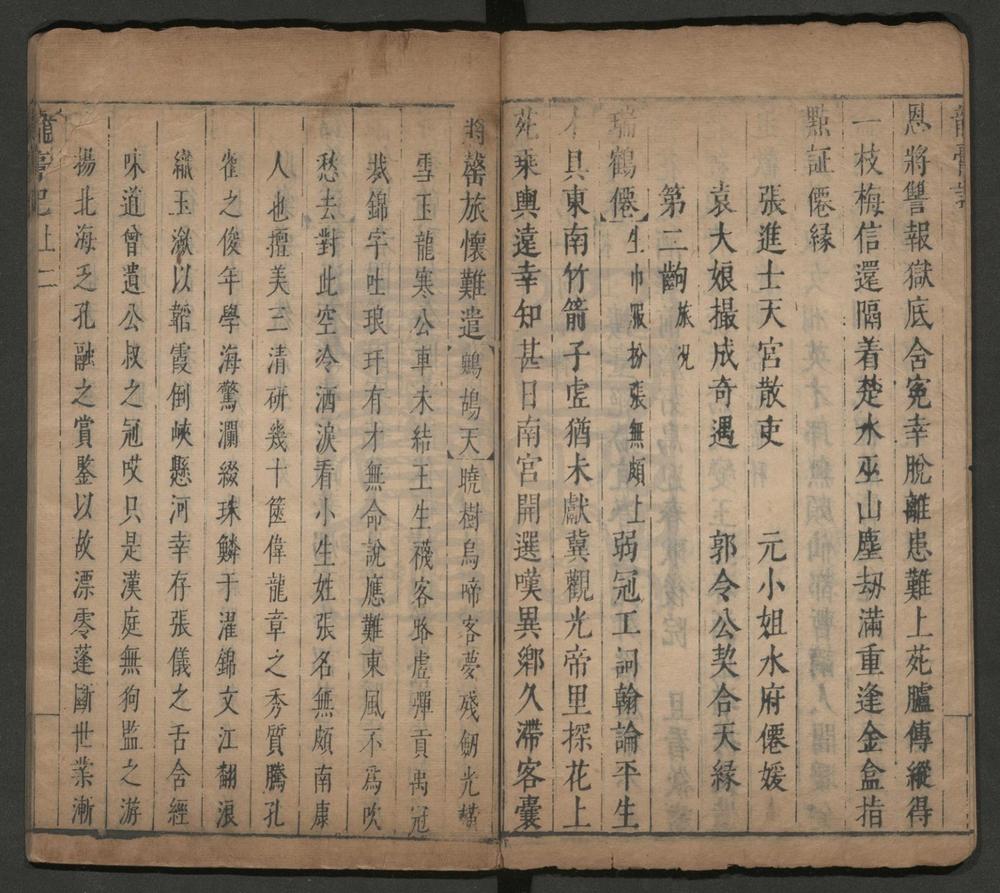 恩將讐報獄底舍寃幸脫離患難上苑臚傳縱得
一枝梅信還隔着楚水巫山塵劫滿重逢金盒指
點証僊緣
張進士天宮散吏 元小姐水府僊媛
袁大娘撮成奇遇 郭令公契合天緣
第二齣 旅況
瑞鶴僊【生巾服扮張無頗上】弱冠工詞翰論平生
具東南竹箭子虛猶未獻冀觀光帝里探花上
苑乘輿遠幸知甚日南宮開選嘆異鄉久滯客囊
將罄旅懷難遣【鷓鴣天】曉樹烏啼客夢殘劒光橫
雪玉龍寒公車未結王生襪客路虛彈貢禹冠
裁錦字吐琅玕有才無命說應難東風不爲吹
愁去對此空冷洒淚看小生姓張名無頗南康
人也擅美三清研幾十篋偉龍章之秀質騰孔
雀之俊年學海驚瀾綴珠鱗于濯錦文江翻浪
織玉漵以韜霞倒峽懸河幸存張儀之舌含經
味道曾遺公叔之冠哎只是漢庭無狗監之游
揚北海乏孔融之賞鑒以故漂零蓬斷世業漸
龍膏記上 二